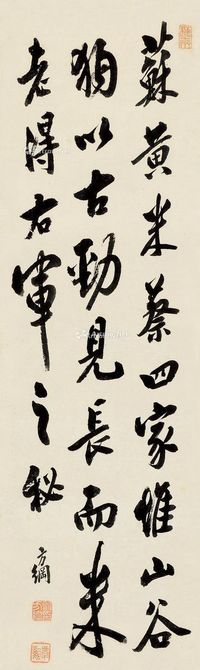 蘇黄米蔡四家惟山谷
獨以古勁見長而米
老得右軍之秘
方綱